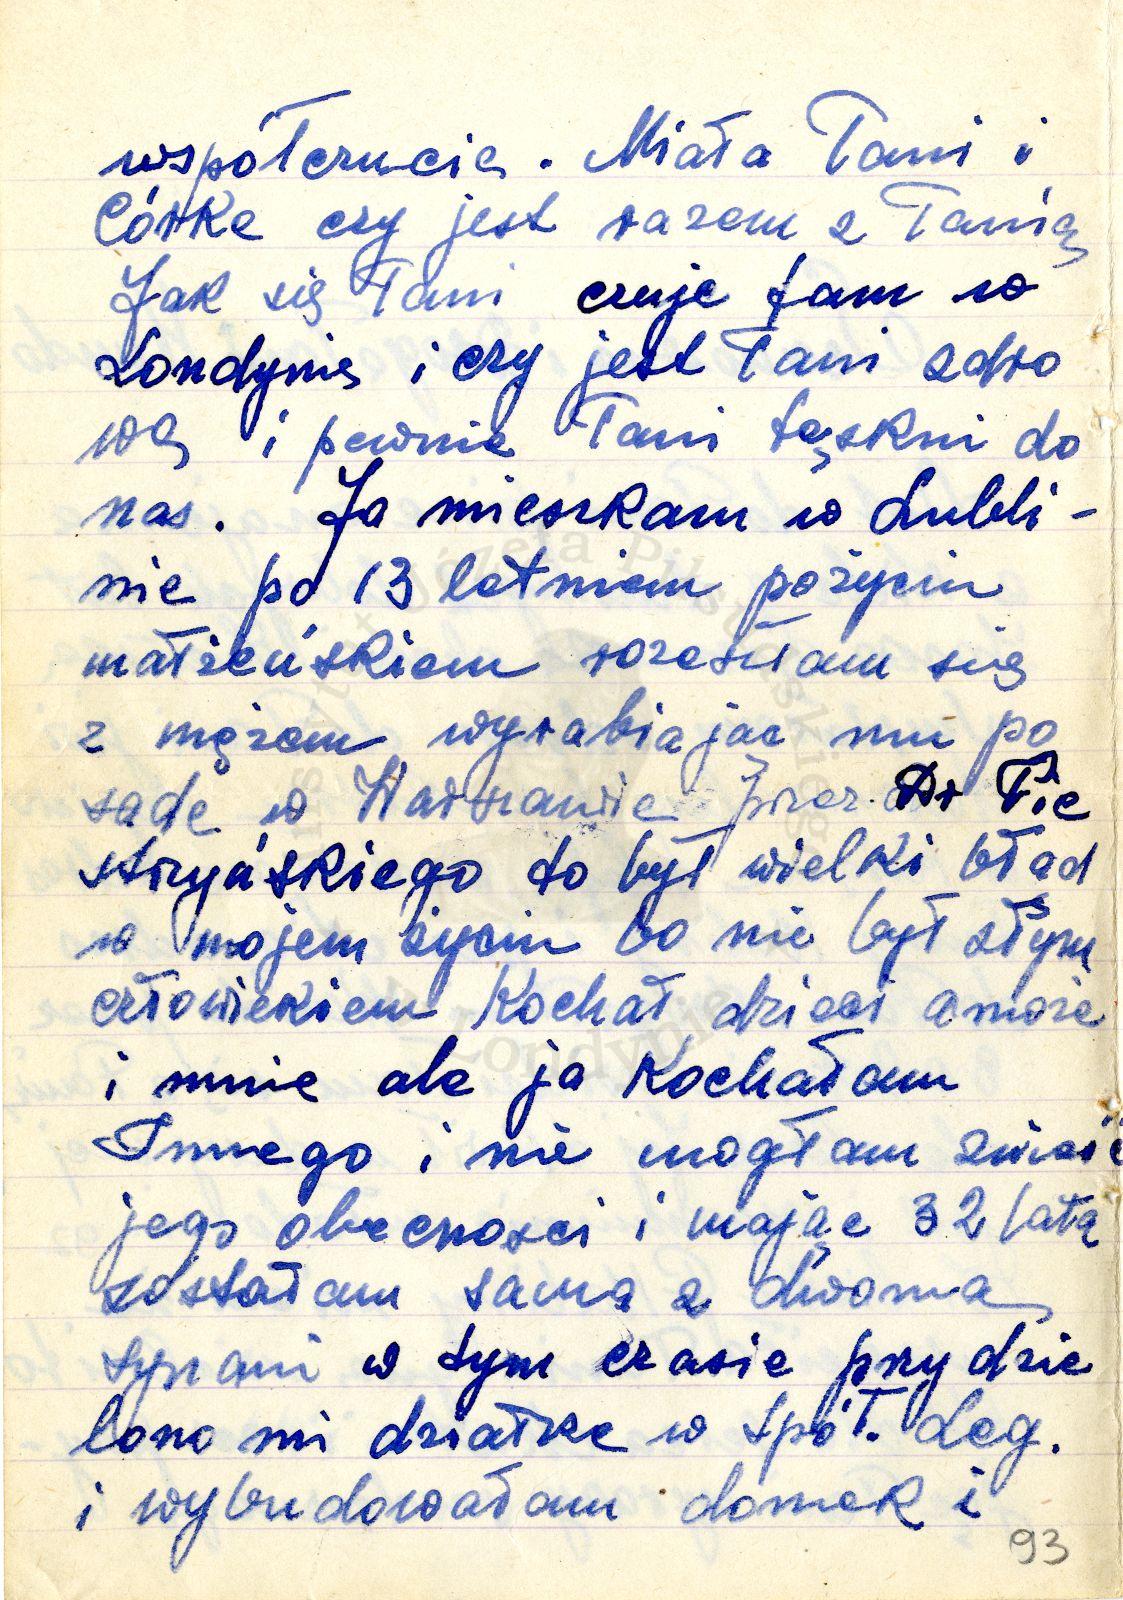 współczucie. Miała Pani i
Córke czy jest razem z Panią
Jak się Pani czuje tam w
Londynie i czy jest Pani zdro
wą i pewnie Pani tęskni do
nas. Ja mieszkam w Lubli-
nie po 13 letniem pożyciu
małżeńskiem rozeszłam się
z mężem wyrabiając mu po
sadę w Warszawie przez Dr Pie
strzyńskiego to był wielki błąd
w mojem życiu bo nie był złym
człowiekiem Kochał dzieci a może
i mnie ale ja Kochałam
Innego i nie mogłam znieść
jego obecności i mając 32 lata
zostałam sama z dwoma
synami w tym czasie przydzie
lono mi działke w Spół. Leg.
i wybudowałam domek i
93
Instytut Józefa Piłsudskiego
w Londynie